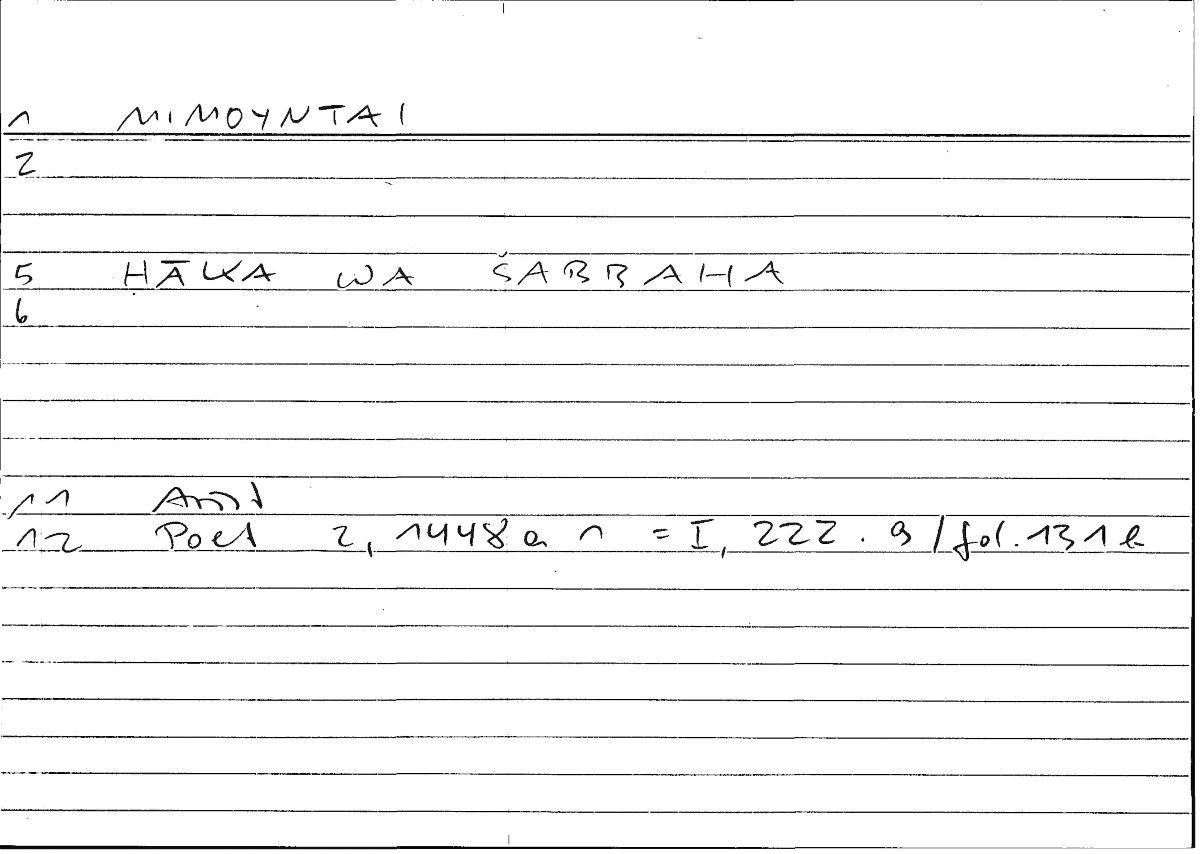 1 ΜΙΜΟΥΝΤΑΙ
2
5 ḤĀKA WA ŠABBAHA
6
11 Arist
12 Poet 2, 1448 a 1 = I, 222. 9 / fol. 131 b